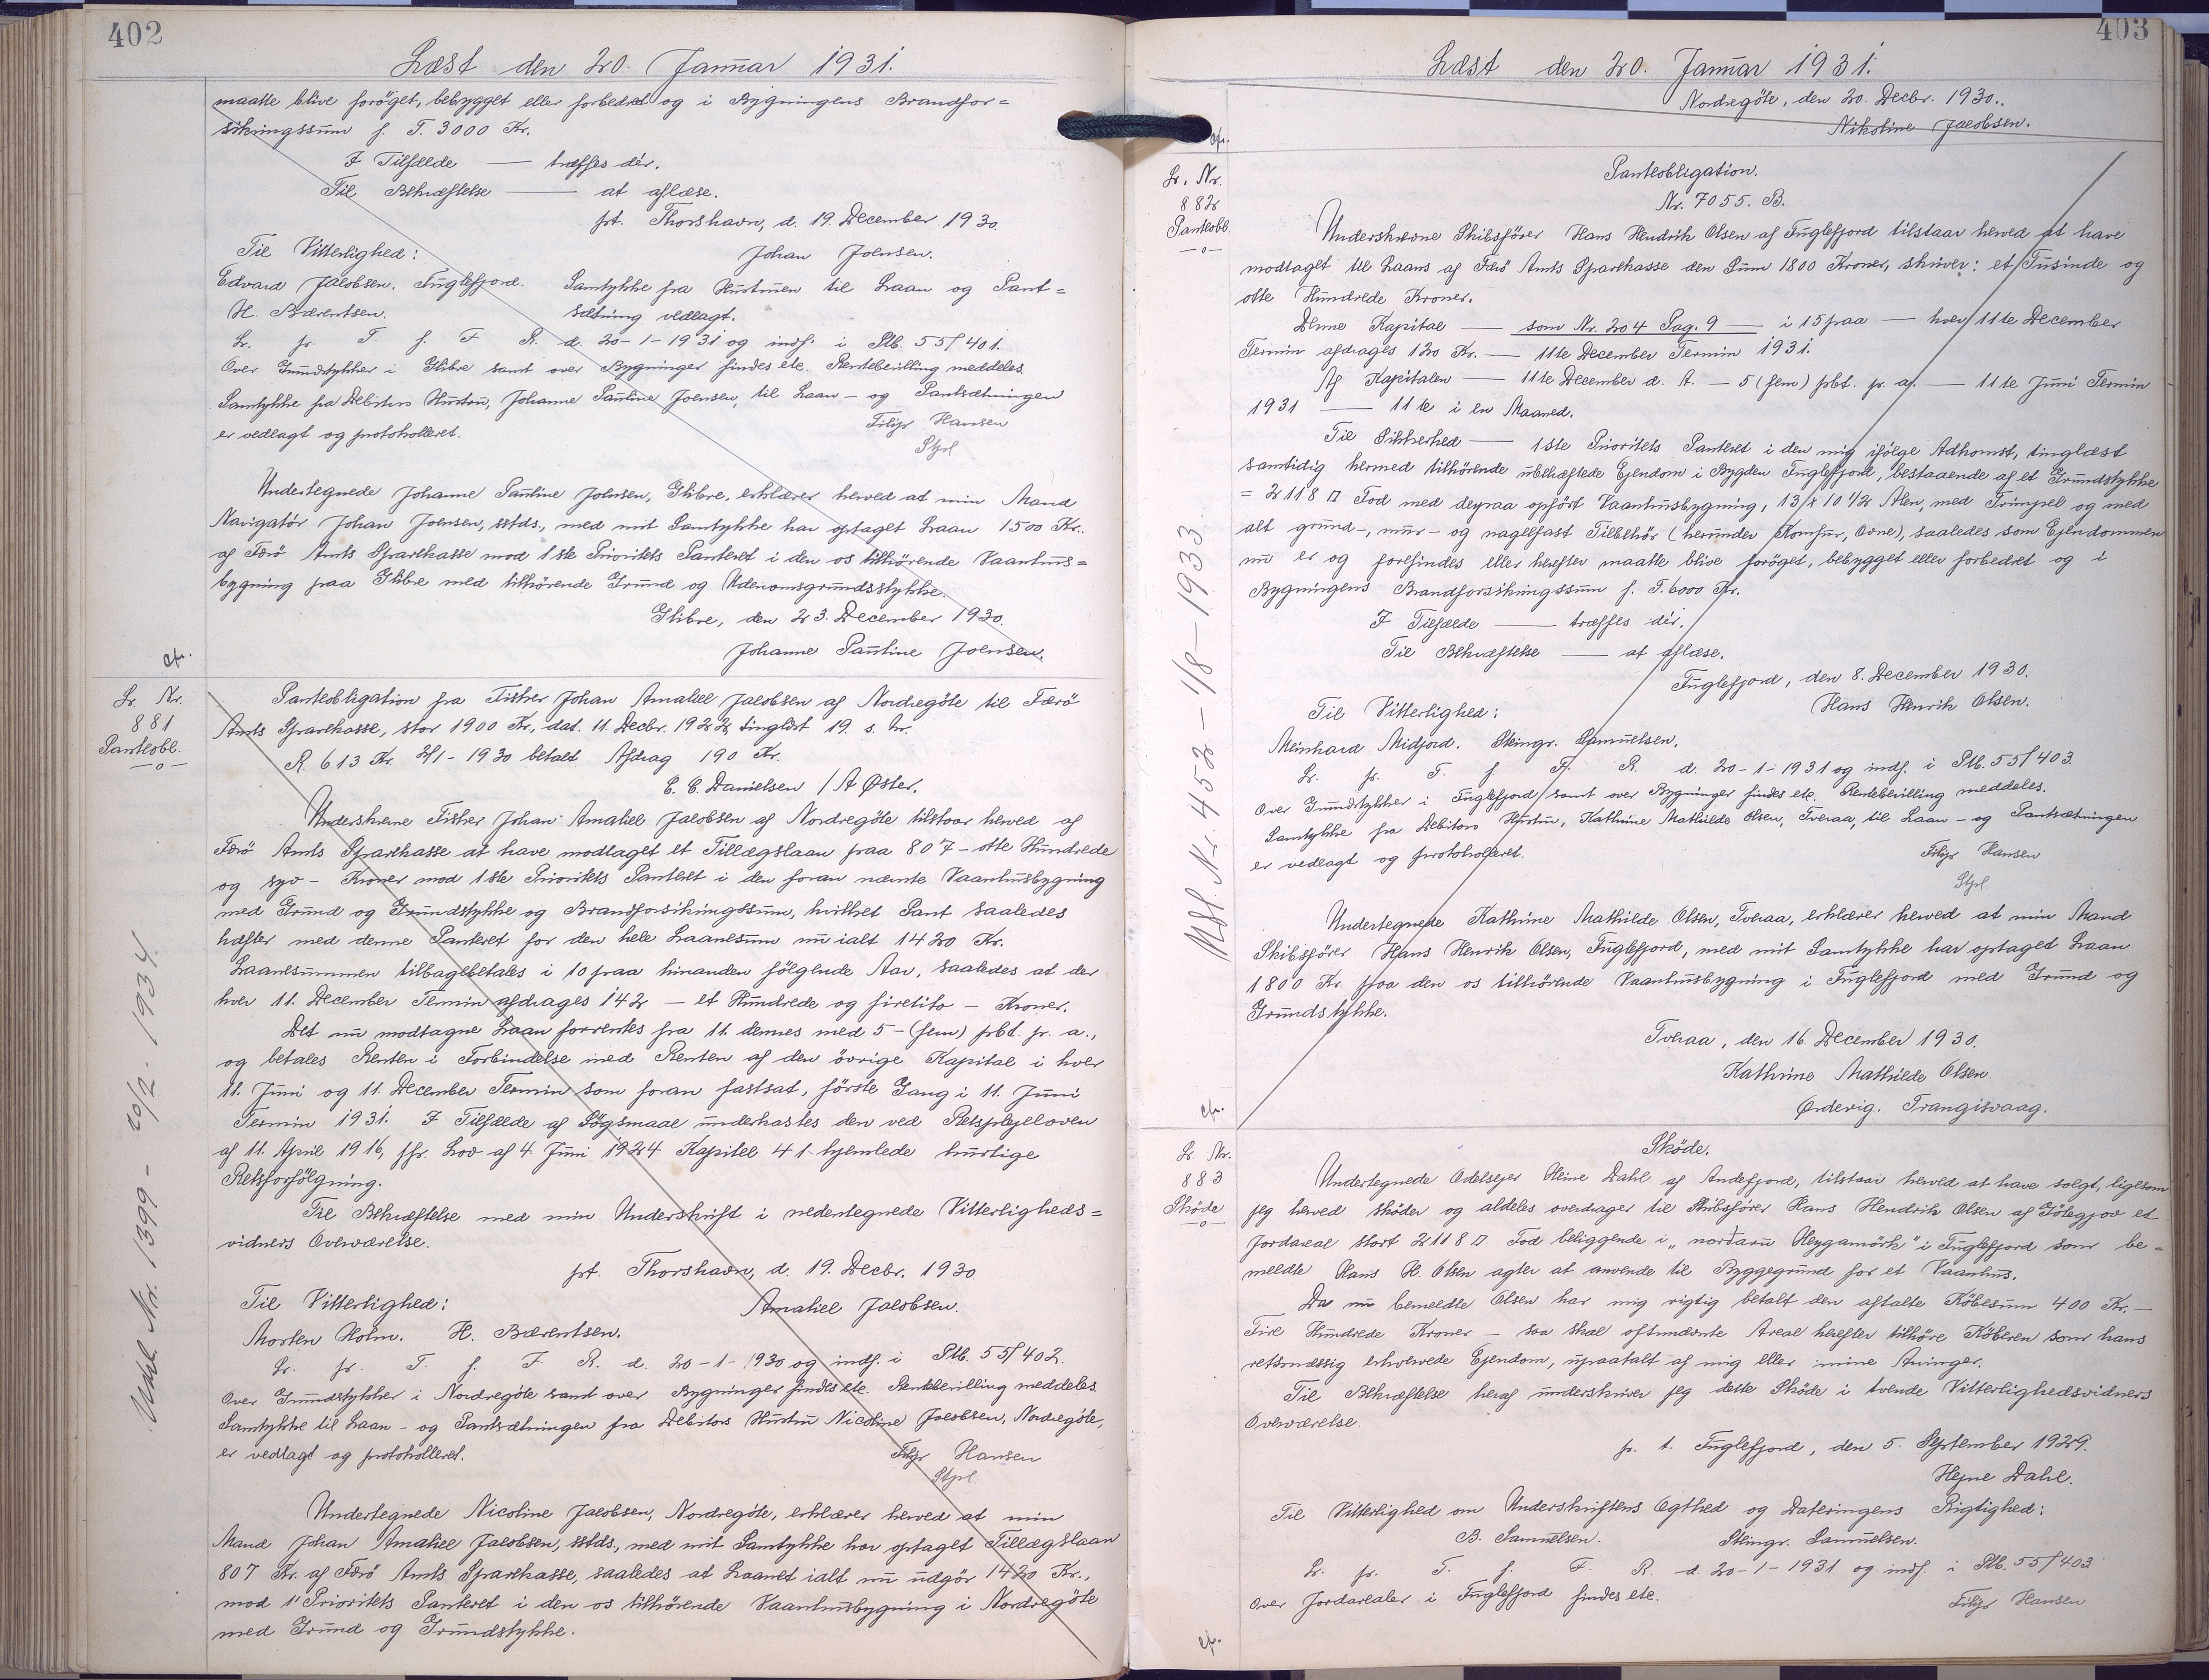 402
Læst den 20. Januar 1931.
maatte blive forøget, bebygget eller forbedret og i Bygningens Brandfor=
sikringssum f. T. 3000 Kr.
I Tilfælde — træffes dér.
Til Bekræftelse — at aflæse.
pt. Thorshavn, d. 19. December 1930.
Til Vitterlighed:
Johan Joensen.
Edvard Jacobsen. Fuglefjord.
Samtykke fra Hustruen til Laan og Pant=
H. Bærentsen.
sætning vedlagt.
L. p. T. f. F. R. d. 20-1-1931 og indf. i Ptb. 55/401.
Over Grundstykker i Glibre samt over Bygninger findes etc. Rentebevilling meddeles.
Samtykke fra Debitors Hustru, Johanne Pauline Joensen, til Laan- og Pantsætningen
er vedlagt og protokolleret.
Filip Hansen
Stpl
Undertegnede Johanne Pauline Joensen, Glibre, erklærer herved at min Mand
Navigatör Johan Joensen, sstds., med mit Samtykke har optaget Laan 1500 Kr.
af Færö Amts Sparekasse mod 1ste Prioritets Panteret i den os tilhørende Vaanhus=
bygning paa Glibre med tilhørende Grund og Udenomsgrundsstykke.
Glibre, den 23. December 1930.
Johanne Pauline Joensen.
cfr.
L. Nr.
881
Panteobl.
—o—
Panteobligation fra Fisker Johan Amaliel Jacobsen af Nordregöte til Færö
Amts Sparekasse, stor 1900 Kr., dat. 11. Decbr. 1922, tinglæst 19. s. M.
R. 613 Kr. 2/1-1930 betalt Afdrag 190 Kr.
C. C. Danielsen / A Øster.
Underskrevne Fisker Johan Amaliel Jacobsen af Nordregöte tilstaar herved af
Færö Amts Sparekasse at have modtaget et Tillægslaan paa 807 - otte Hundrede
og syv - Kroner mod 1ste Prioritets Panteret i den foran nævnte Vaanhusbygning
med Grund og Grundstykke og Brandforsikringssum, hvilket Pant saaledes
hæfter med denne Panteret for den hele Laanesum nu ialt 1420 Kr.
Laanesummen tilbagebetales i 10 paa hinanden følgende Aar, saaledes at der
hver 11. December Termin afdrages 142 - et Hundrede og firetito - Kroner.
Det nu modtagne Laan forrentes fra 11. dennes med 5 - (fem) pCt. p. a.,
og betales Renten i Forbindelse med Renten af den øvrige Kapital i hver
11. Juni og 11. December Termin som foran fastsat, første Gang i 11. Juni
Termin 1931. I Tilfælde af Søgsmaal underkastes den ved Retsplejeloven
af 11. April 1916, jfr. Lov af 4. Juni 1924 Kapitel 41 hjemlede hurtige
Retsforfølgning.
Til Bekræftelse med min Underskrift i nedentegnede Vitterligheds=
vidners Overværelse.
pt. Thorshavn, d. 19. Decbr. 1930
Til Vitterlighed:
Amaliel Jacobsen.
Morten Holm. H. Bærentsen.
L. p. T. f. F. R. d. 20-1-1930 og indf. i Ptb. 55/402.
Over Grundstykker i Nordregöte samt over Bygninger findes etc. Rentebevilling meddeles.
Samtykke til Laan- og Pantsætningen fra Debitors Hustru Nicoline Jacobsen, Nordregöte,
er vedlagt og protokolleret.
Filip Hansen
Stpl
Undertegnede Nicoline Jacobsen, Nordregöte, erklærer herved at min
Mand Johan Amaliel Jacobsen, sstds., med mit Samtykke har optaget Tillægslaan
807 Kr. af Færö Amts Sparekasse, saaledes at Laanet ialt nu udgör 1420 Kr.,
mod 1' Prioritets Panteret i den os tilhørende Vaanhusbygning i Nordregöte
med Grund og Grundstykke.
Udsl. Nr. 1399 - 20/2 - 1934.
403
Læst den 20. Januar 1931.
Nordregöte, den 20. Decbr. 1930.
Nikoline Jacobsen.
cfr.
L. Nr.
882
Panteobl.
—o—
Panteobligation.
Nr. 7055. B.
Underskrevne Skibsfører Hans Hendrik Olsen af Fuglefjord tilstaar herved at have
modtaget til Laans af Færö Amts Sparekasse den Sum 1800 Kroner, skriver: et Tusinde og
otte Hundrede Kroner.
Denne Kapital — som Nr. 204 Pag. 9 — i 15 paa — hver 11te December
Termin afdrages 120 Kr. — 11te December Termin 1931.
Af Kapitalen — 11te December d. A. — 5 (fem) pCt. p. a. — 11te Juni Termin
1931 — 11te i en Maaned.
Til Sikkerhed — 1ste Prioritets Panteret i den mig ifølge Adkomst, tinglæst
samtidig hermed tilhørende ubehæftede Ejendom i Bygden Fuglefjord, bestaaende af et Grundstykke
= 2118 □ Fod med derpaa opført Vaanhusbygning, 13 x 10 1/2 Alen, med Trimpel og med
alt grund-, mur- og nagelfast Tilbehör (herunder Komfur, Ovne), saaledes som Ejendommen
nu er og forefindes eller herefter maatte blive forøget, bebygget eller forbedret og i
Bygningens Brandforsikringssum f. T. 6000 Kr.
I Tilfælde — træffes dér.
Til Bekræftelse — at aflæse.
Fuglefjord, den 8. December 1930.
Til Vitterlighed:
Hans Henrik Olsen.
Meinhard Midjord. Steingr. Samuelsen.
L. p. T. f. F. R. d. 20-1-1931 og indf. i Ptb. 55/403.
Over Grundstykker i Fuglefjord samt over Bygninger findes etc. Rentebevilling meddeles.
Samtykke fra Debitors Hustru, Kathrine Mathilde Olsen, Tveraa, til Laan- og Pantsætningen
er vedlagt og protokolleret.
Filip Hansen
Stpl
Undertegnede Kathrine Mathilde Olsen, Tveraa, erklærer herved at min Mand
Skibsfører Hans Henrik Olsen, Fuglefjord, med mit Samtykke har optaget Laan
1800 Kr. paa den os tilhørende Vaanhusbygning i Fuglefjord med Grund og
Grundstykke.
Tveraa, den 16. December 1930.
Kathrine Mathilde Olsen.
Ørdevig. Trangisvaag.
Udsl. Nr. 452 - 1/8 - 1933.
cfr.
L. Nr.
883
Sköde
—o—
Sköde.
Undertegnede Odelsejer Heine Dahl af Andefjord, tilstaar herved at have solgt, ligesom
jeg herved sköder og aldeles overdrager til Skibsfører Hans Hendrik Olsen af Götegjov et
Jordareal stort 2118 □ Fod beliggende i „norđaru Heygamörk" i Fuglefjord som be=
meldte Hans H. Olsen agter at anvende til Byggegrund for et Vaanhus.
Da nu bemeldte Olsen har mig rigtig betalt den aftalte Købesum 400 Kr. —
Fire Hundrede Kroner — saa skal oftnævnte Areal herefter tilhøre Køberen som hans
retsmæssig erhvervede Ejendom, upaatalt af mig eller mine Arvinger.
Til Bekræftelse heraf underskriver jeg dette Sköde i tvende Vitterlighedsvidners
Overværelse.
p. t. Fuglefjord, den 5. September 1929.
Hejne Dahl.
Til Vitterlighed om Underskriftens Ægthed og Dateringens Rigtighed:
B. Samuelsen. Steingr. Samuelsen.
L. p. T. f. F. R. d 20-1-1931 og indf. i Ptb. 55/403
Over Jordarealer i Fuglefjord findes etc.
Filip Hansen
cfr.